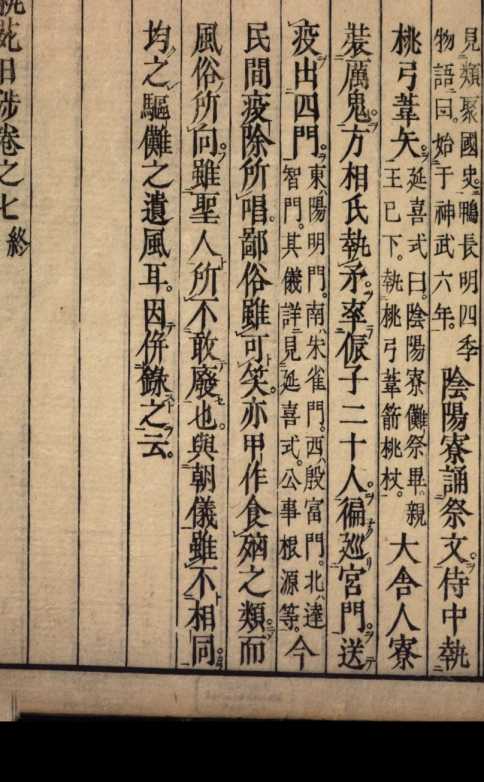 見類聚國史。鴨長明四季
物語曰。始于神武六年。
陰陽寮誦祭文。侍中執
桃弓葦矢。
延喜式曰。陰陽寮儺祭畢。親
王已下。執桃弓葦箭桃杖。
大舍人寮
裝厲鬼。方相氏執矛。率侲子二十人。徧巡宮門。送
疫出四門。
東陽明門。南朱雀門。西殷富門。北達
智門。其儀詳見延喜式。公事根源等。
今
民間疫除所唱。鄙俗雖可笑。亦甲作食之類。而
風俗所向。雖聖人所不敢廢也。與朝儀雖不相同。
均之驅儺之遺風耳。因併錄之云。
苑日涉卷之七終